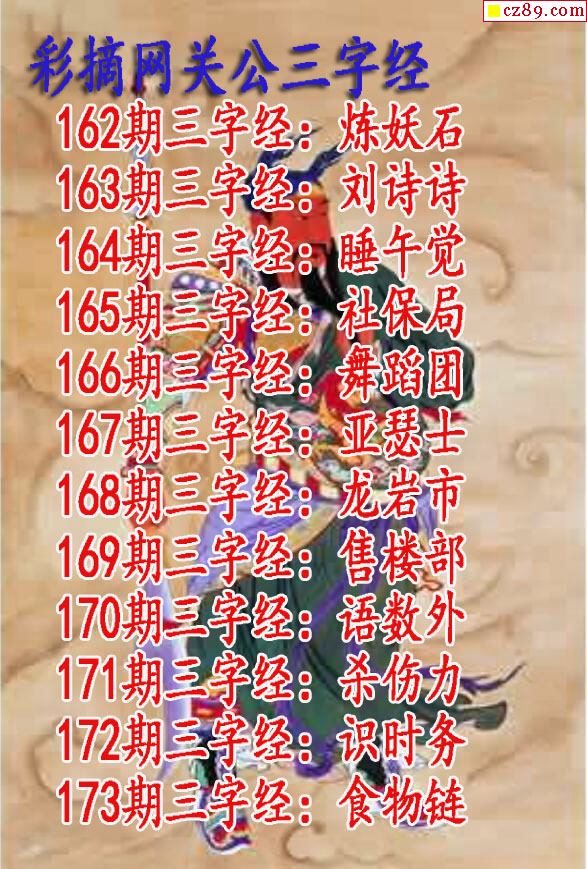 cz89.com
彩摘网关公三字经
162期三字经：炼妖石
163期三字经：刘诗诗
164期三字经：睡午觉
165期三字经：社保局
166期三字经：舞蹈团
167期三字经：亚瑟士
168期三字经：龙岩市
169期三字经：售楼部
170期三字经：语数外
171期三字经：杀伤力
172期三字经：识时务
173期三字经：食物链